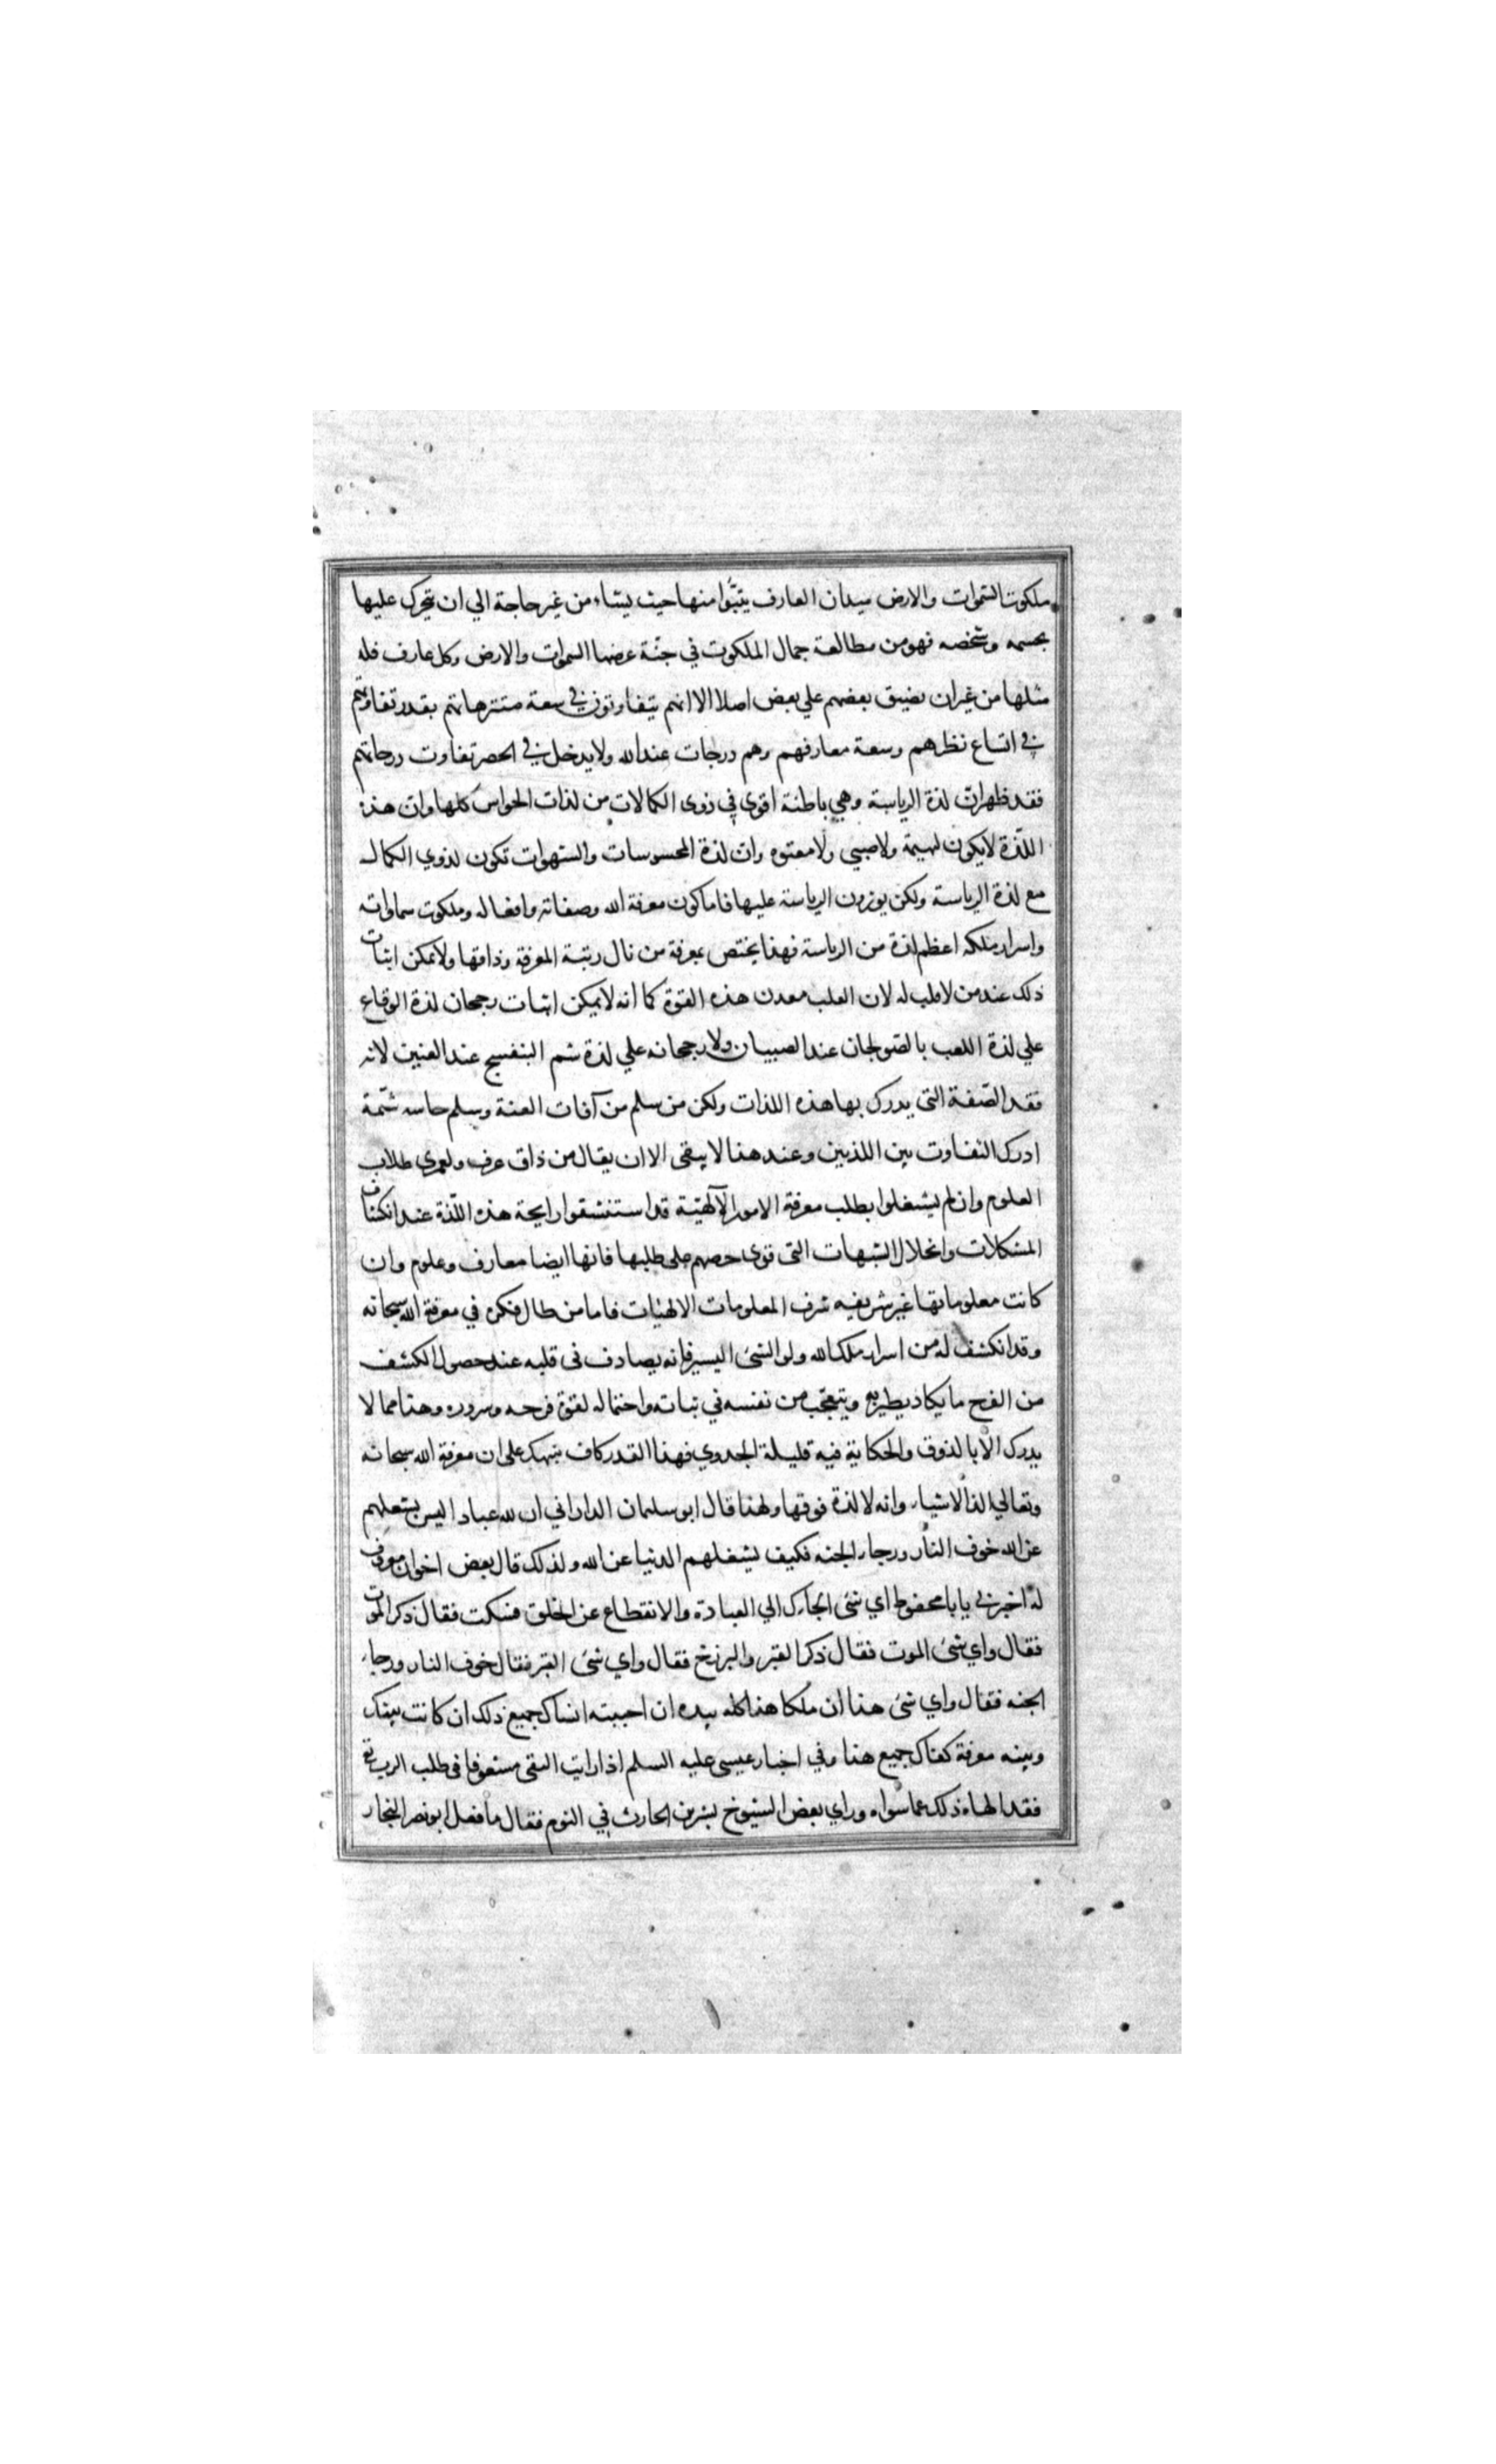 ملكوت السموات والارض ميدان العارف يتبوا منها حيث يشاء من غير حاجة الي ان يتحرك عليها
بجسمه وشخصه فهو من مطالعة جمال الملكوت في جنة عرضها السموات والارض وكل عارف فله
مثلها من غير ان يضيق بعضهم علي بعض اصلا الا انهم يتفاوتون في سعة متنزهاتهم بقدر تفاوتهم
في اتساع نظرهم وسعة معارفهم وهم درجات عند الله ولا يدخل في الحصر تفاوت درجاتهم
فقد ظهر ان لذة الرياسة وهي باطنة اقوي في ذوي الكمالات من لذات الحواس كلها وان هذه
اللذة لا يكون لبهيمة ولا صبي ولا معتوه وان لذة المحسوسات والشهوات تكون لذوي الكمال
مع لذة الرياسة ولكن يوثرون الرياسة عليها فاما كون معرفة الله وصفاته وافعاله وملكوت سماواته
واسرار ملكه اعظم لذة من الرياسة فهذا يختص بمعرفة من نال رتبة المعرفة وذاقها ولا يمكن اثبات
ذلك عند من لا قلب له لان القلب معدن هذه القوة كما انه لا يمكن اثبات رجحان لذة الوقاع
علي لذة اللعب بالصولجان عند الصبيان ولا رجحانه علي لذة شم البنفسج عند العنين لانه
فقد الصفة التي يدرك بها هذه اللذات ولكن من سلم من آفات العنة وسلم حاسه شمه
ادرك التفاوت بين اللذتين وعند هذا لا يبقي الا ان يقال من ذاق عرف ولعمري طلاب
العلوم وان لم يشغلوا بطلب معرفة الامور الالهية قد استنشقوا رايحة هذه اللذة عند انكشاف
المشكلات وانحلال الشبهات التي قوي حصهم علي طلبها فانها ايضا معارف وعلوم وان
كانت معلوماتها غير شريفه شرف المعلومات الالهيات فاما من طال فكره في معرفة الله سبحانه
وقد انكشف له من اسرار ملك الله ولو الشئ اليسير فانه يصادف في قلبه عند حصول الكشف
من الفرح ما يكاد يطير به ويتعجب من نفسه في ثباته واحتماله لقوة فرحه وسروره وهذا مما لا
يدرك الا بالذوق والحكاية فيه قليلة الجدوي فهذا القدر كاف ينبهك علي ان معرفة الله سبحانه
وتعالي الذ الاشياء وانه لا لذة فوقها ولهذا قال ابو سليمان الداراني ان لله عبادا ليس يشغلهم
عن الله خوف النار ورجاء الجنه فكيف يشغلهم الدنيا عن الله ولذلك قال بعض اخوان معروف
له اخبرني يابا محفوظ اي شئ الجأك الي العبادة والانقطاع عن الخلق فسكت فقال ذكر الموت
فقال واي شئ الموت فقال ذكر القبر والبرزخ فقال واي شئ القبر فقال خوف النار ورجاء
الجنه فقال واي شئ هذا ان ملكا هذا كله بيده ان احببته انساك جميع ذلك ان كانت بينك
وبينه معرفة كفاك جميع هذا وفي اخبار عيسي عليه السلم اذا رايت التقي مشغوفا في طلب الرب تع
فقد الهاه ذلك عما سواه وراي بعض الشيوخ بشر بن الحارث في النوم فقال ما فعل ابو نصر النجار